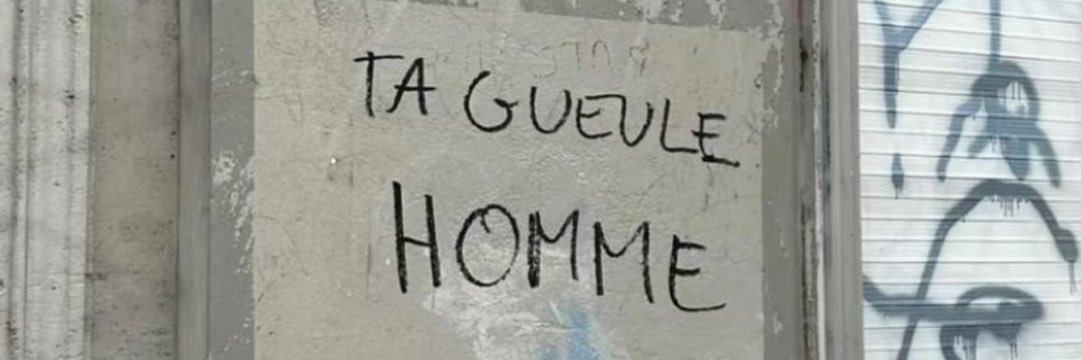 TA GUEULE
HOMME